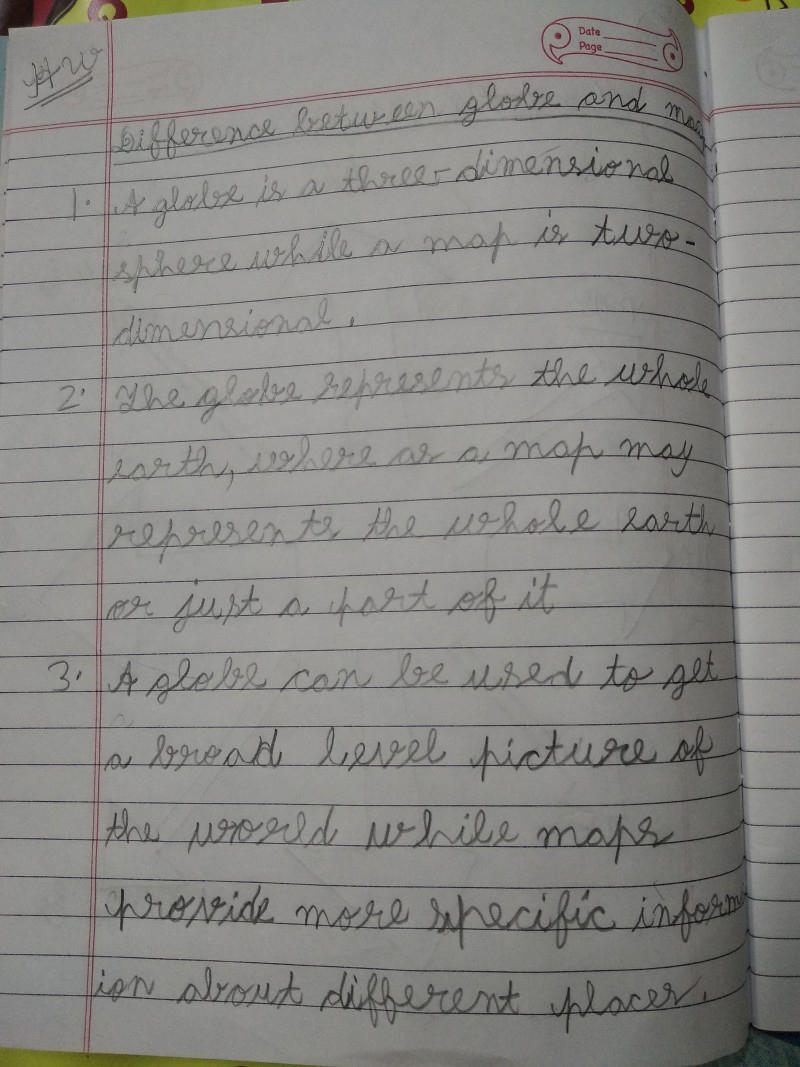 Date
Page
H W
Difference between globe and map
1. A globe is a three-dimensional
sphere while a map is two-
dimensional.
2. The globe represents the whole
earth, where as a map may
represents the whole earth
or just a part of it
3. A globe can be used to get
a broad level picture of
the world while maps
provide more specific inform
ion about different places.